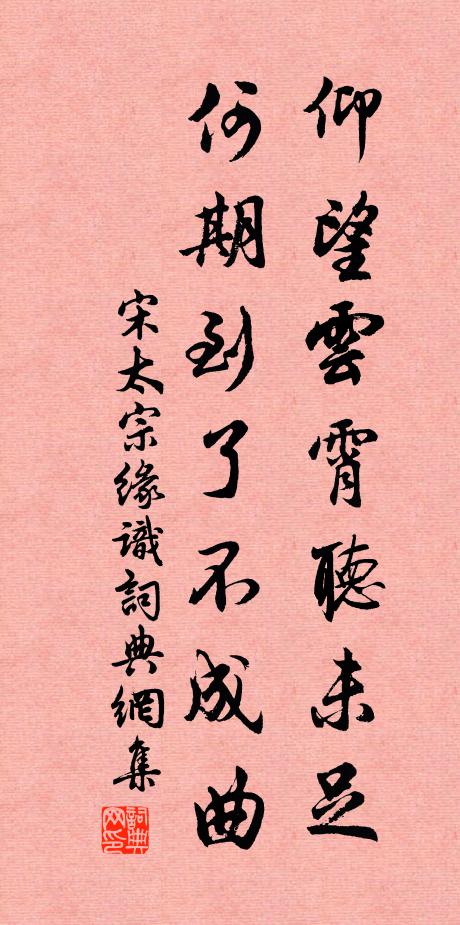 仰望雲霄聽未足
何期到了不成曲
宋太宗緣識詞典網集
詞典
网印